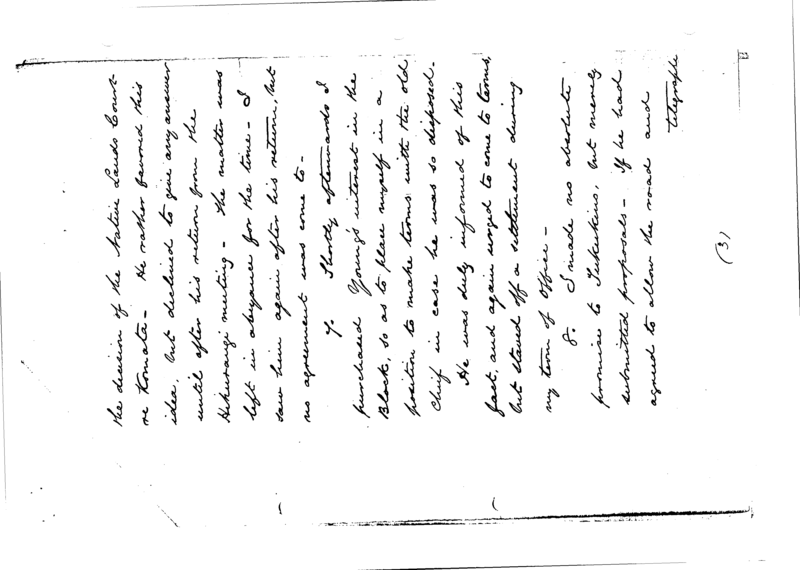 the decision of the Native Lands Court
re Komata - He rather favored this
idea, but declined to give any answer
until after his return from the
Hikurangi meeting - The matter was
left in abeyance for the time - I
saw him again after his return, but
no agreement was come to -
7. Shortly afterwards I
purchased Young's interest in the
Block, so as to place myself in a
position to make terms with the old
Chief in case he was so disposed.
He was duly informed of this
fact, and again urged to come to terms,
but staved off a settlement during
my term of Office -
8. I made no absolute
promise to Tukukino, but merely
submitted proposals - If he had
agreed to allow the road and
telegraph
(3)